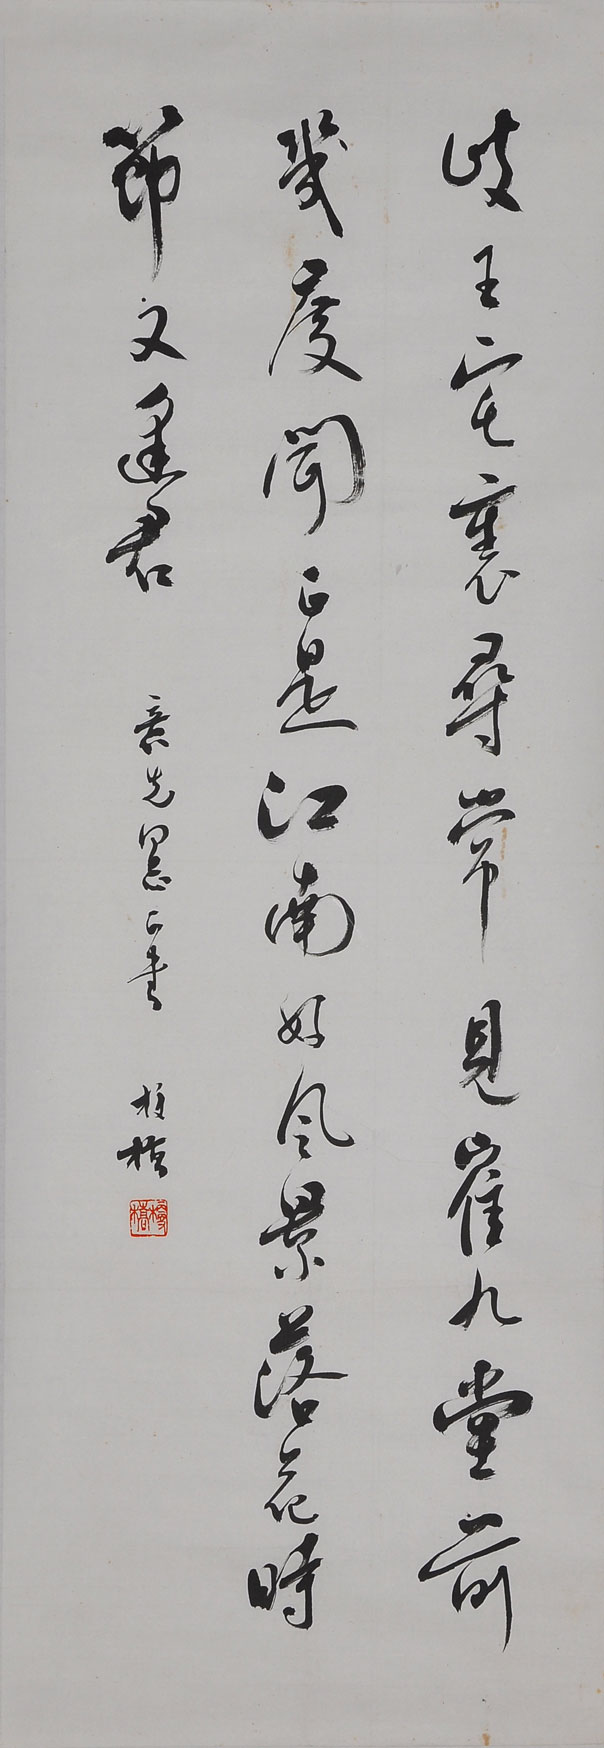 岐王宅裏尋常見崔九堂前
幾度聞正是江南好風景落花時
節又逢君
先墨正書